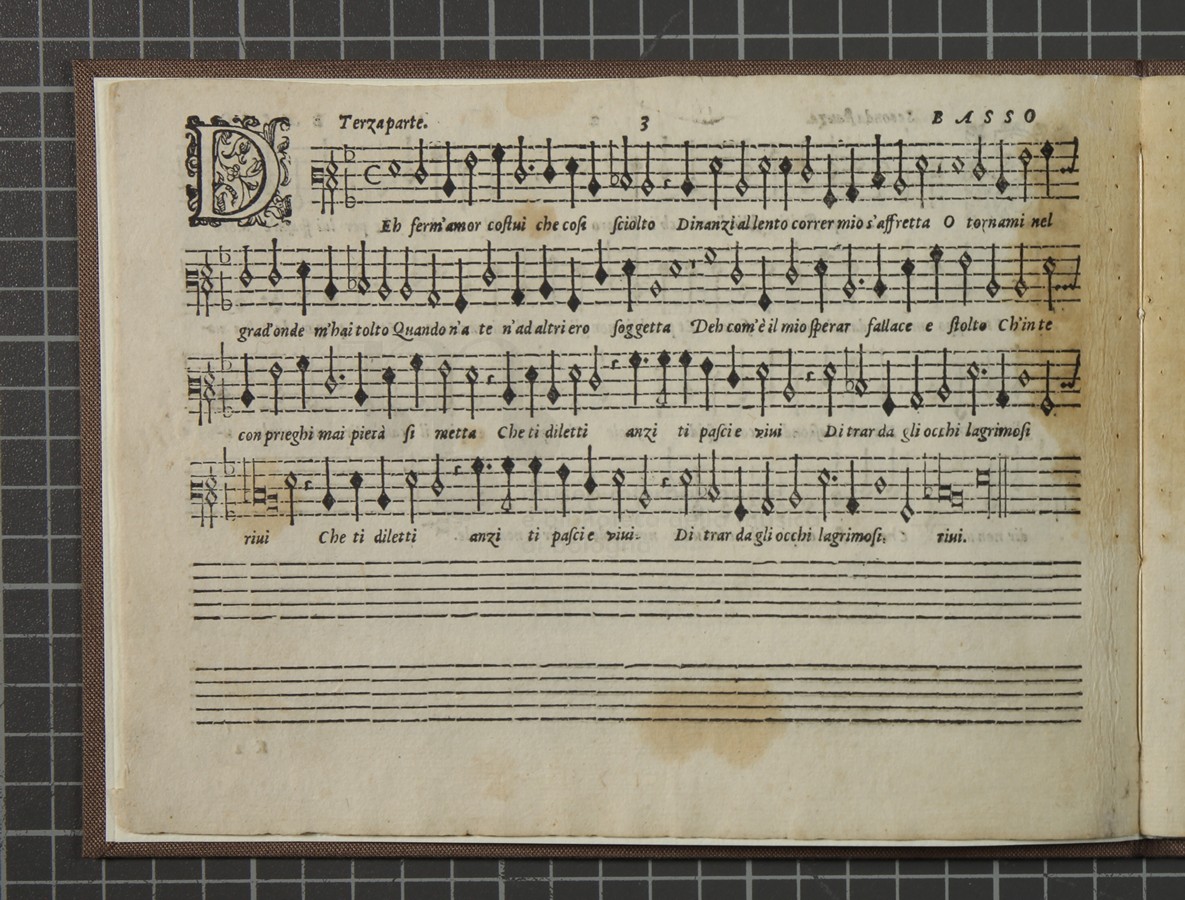 Terza parte. 3 BASSO
DEh ferm'amor costui che cosi sciolto Dinanzi al lento correr mio s'affretta O tornami nel
grad'onde m'hai tolto Quando n'a te n'ad altri ero soggetta Deh com'è il mio sperar fallace e stolto Ch'in te
con prieghi mai pietà si metta Che ti diletti anzi ti pasci e viui Di trar da gli occhi lagrimosi
riui Che ti diletti anzi ti pasci e viui. Di trar da gli occhi lagrimosi. riui.